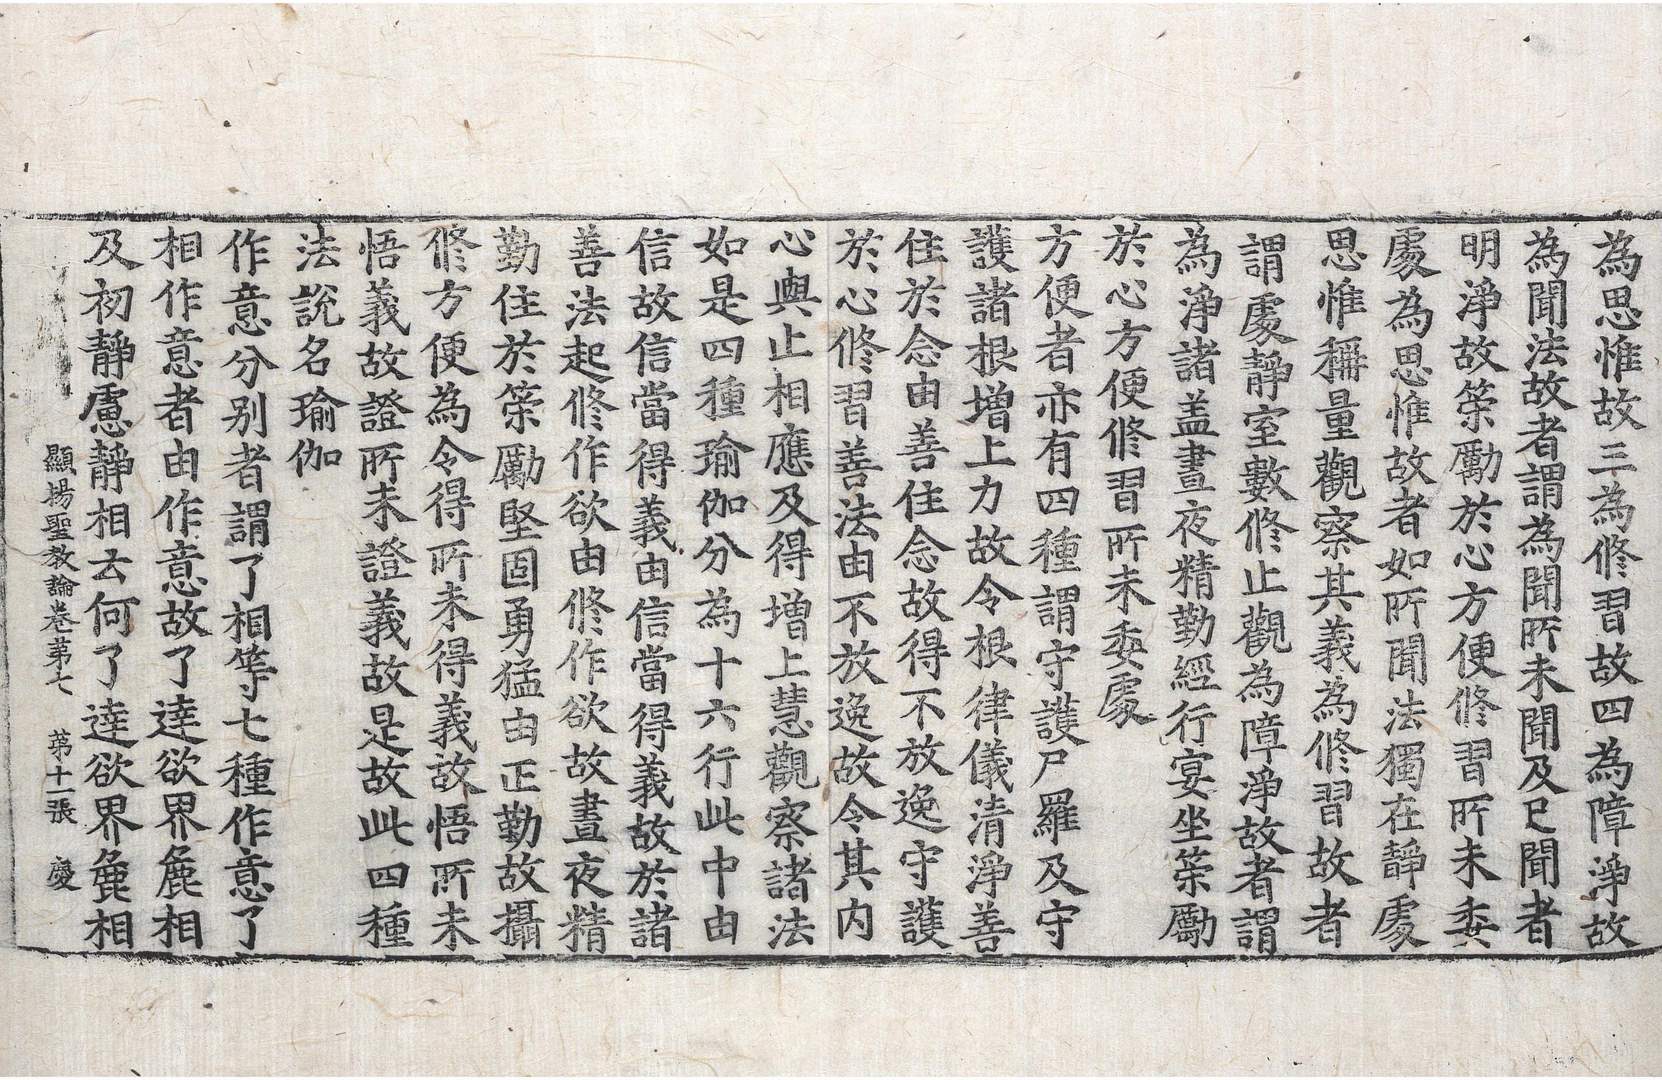 為思惟故三為修習故四為障淨故
為聞法故者謂為聞所未聞及已聞者
明淨故策勵於心方便修習所未委
處為思惟故者如所聞法獨在靜處
思惟稱量觀察其義為修習故者
謂處靜室數修止觀為障淨故者謂
為淨諸盖晝夜精勤經行宴坐策勵
於心方便修習所未委處
方便者亦有四種謂守護尸羅及守
護諸根增上力故令根律儀清淨善
住於念由善住念故得不放逸守護
於心修習善法由不放逸故令其内
心與止相應及得增上慧觀察諸法
如是四種瑜伽分為十六行此中由
信故信當得義由信當得義故於諸
善法起修作欲由修作欲故晝夜精
勤住於策勵堅固勇猛由正勤故攝
修方便為令得所未得義故悟所未
悟義故證所未證義故是故此四種
法說名瑜伽
作意分别者謂了相等七種作意了
相作意者由作意故了達欲界麁相
及初靜慮靜相云何了達欲界麁相
顯揚聖教論卷第七 第十一張 慶